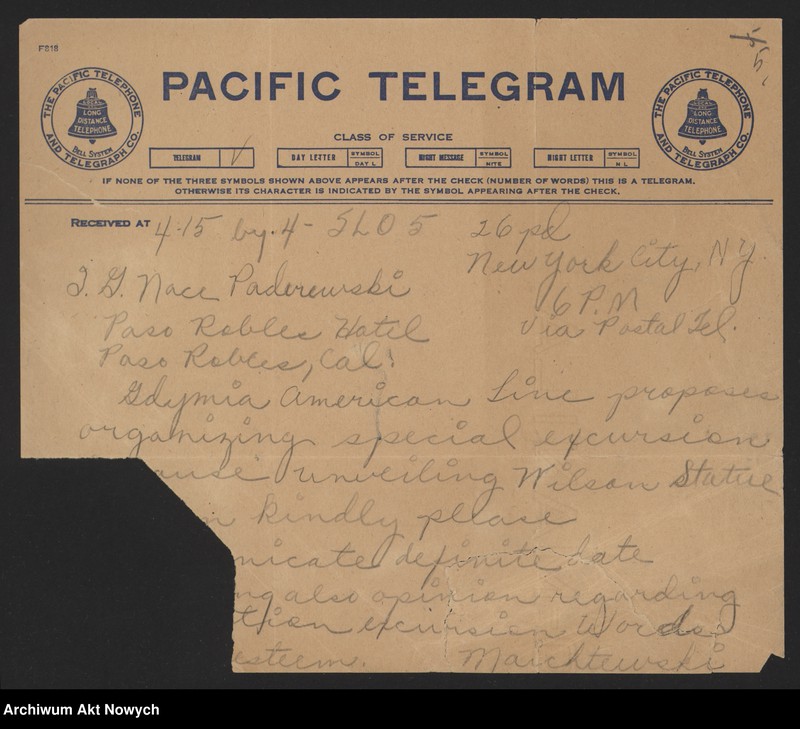 F818
PACIFIC TELEGRAM
THE PACIFIC TELEPHONE AND TELEGRAPH CO.
LONG DISTANCE TELEPHONE
BELL SYSTEM
THE PACIFIC TELEPHONE AND TELEGRAPH CO.
LONG DISTANCE TELEPHONE
BELL SYSTEM
CLASS OF SERVICE
TELEGRAM
DAY LETTER SYMBOL DAY L
NIGHT MESSAGE SYMBOL NITE
NIGHT LETTER SYMBOL N L
IF NONE OF THE THREE SYMBOLS SHOWN ABOVE APPEARS AFTER THE CHECK (NUMBER OF WORDS) THIS IS A TELEGRAM.
OTHERWISE ITS CHARACTER IS INDICATED BY THE SYMBOL APPEARING AFTER THE CHECK.
RECEIVED AT 4:15 by. 4 - SLO 5 26 pd
New York City, NY.
I. G. Nace Paderewski
6 P.M
Paso Robles Hotel via Postal Tel.
Paso Robles, Cal.
Gdymia American Line proposes
organizing special excursion
ause unveiling Wilson Statue
n kindly please
nicate definite date
ng also opinion regarding
tion excursion Words
esteem. Maichtewski
Archiwum Akt Nowych